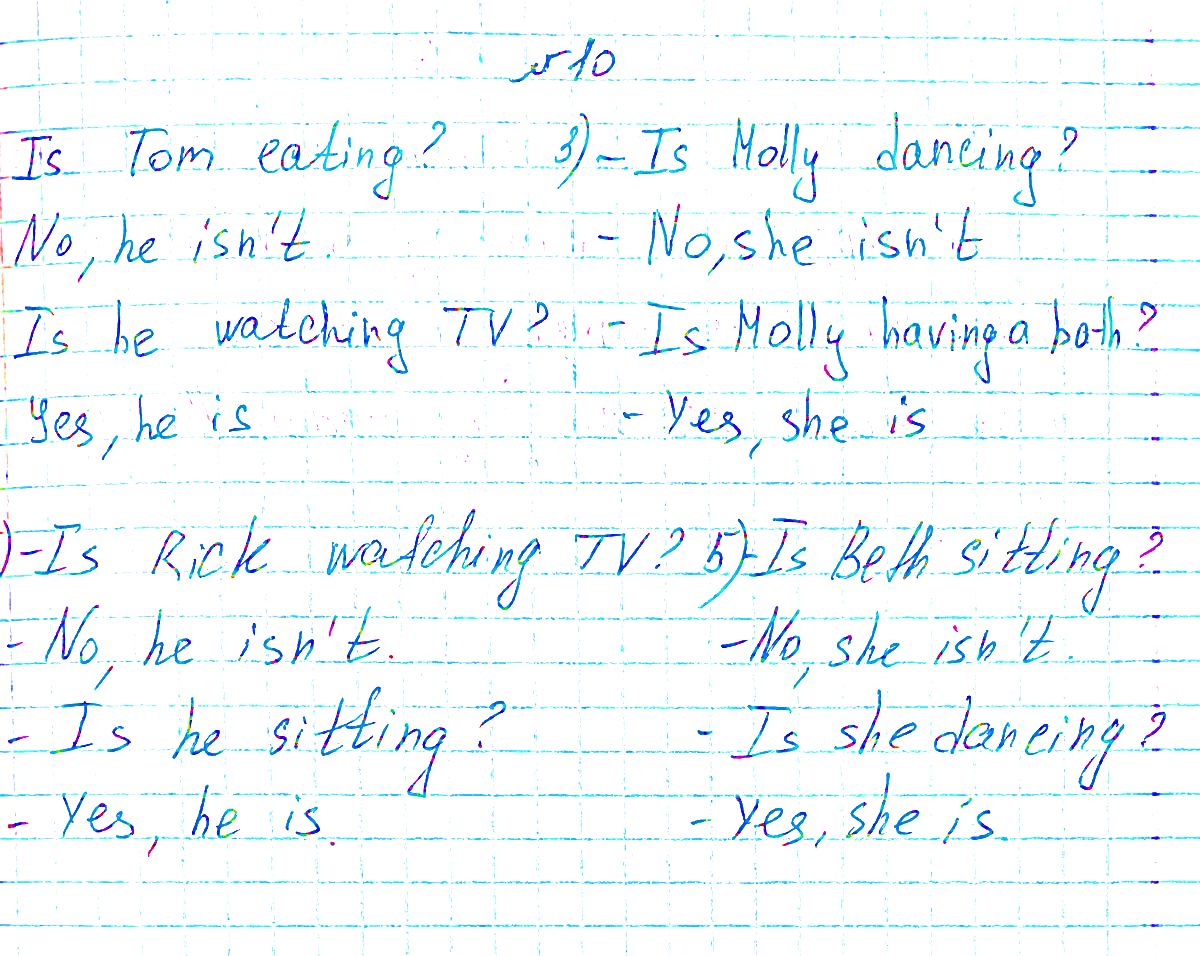 №10
Is Tom eating?
No, he isn't.
Is he watching TV?
Yes, he is.
3) - Is Molly dancing?
- No, she isn't
- Is Molly having a bath?
- Yes, she is
) - Is Rick watching TV?
- No, he isn't.
- Is he sitting?
- Yes, he is.
5) - Is Beth sitting?
- No, she isn't.
- Is she dancing?
- Yes, she is.